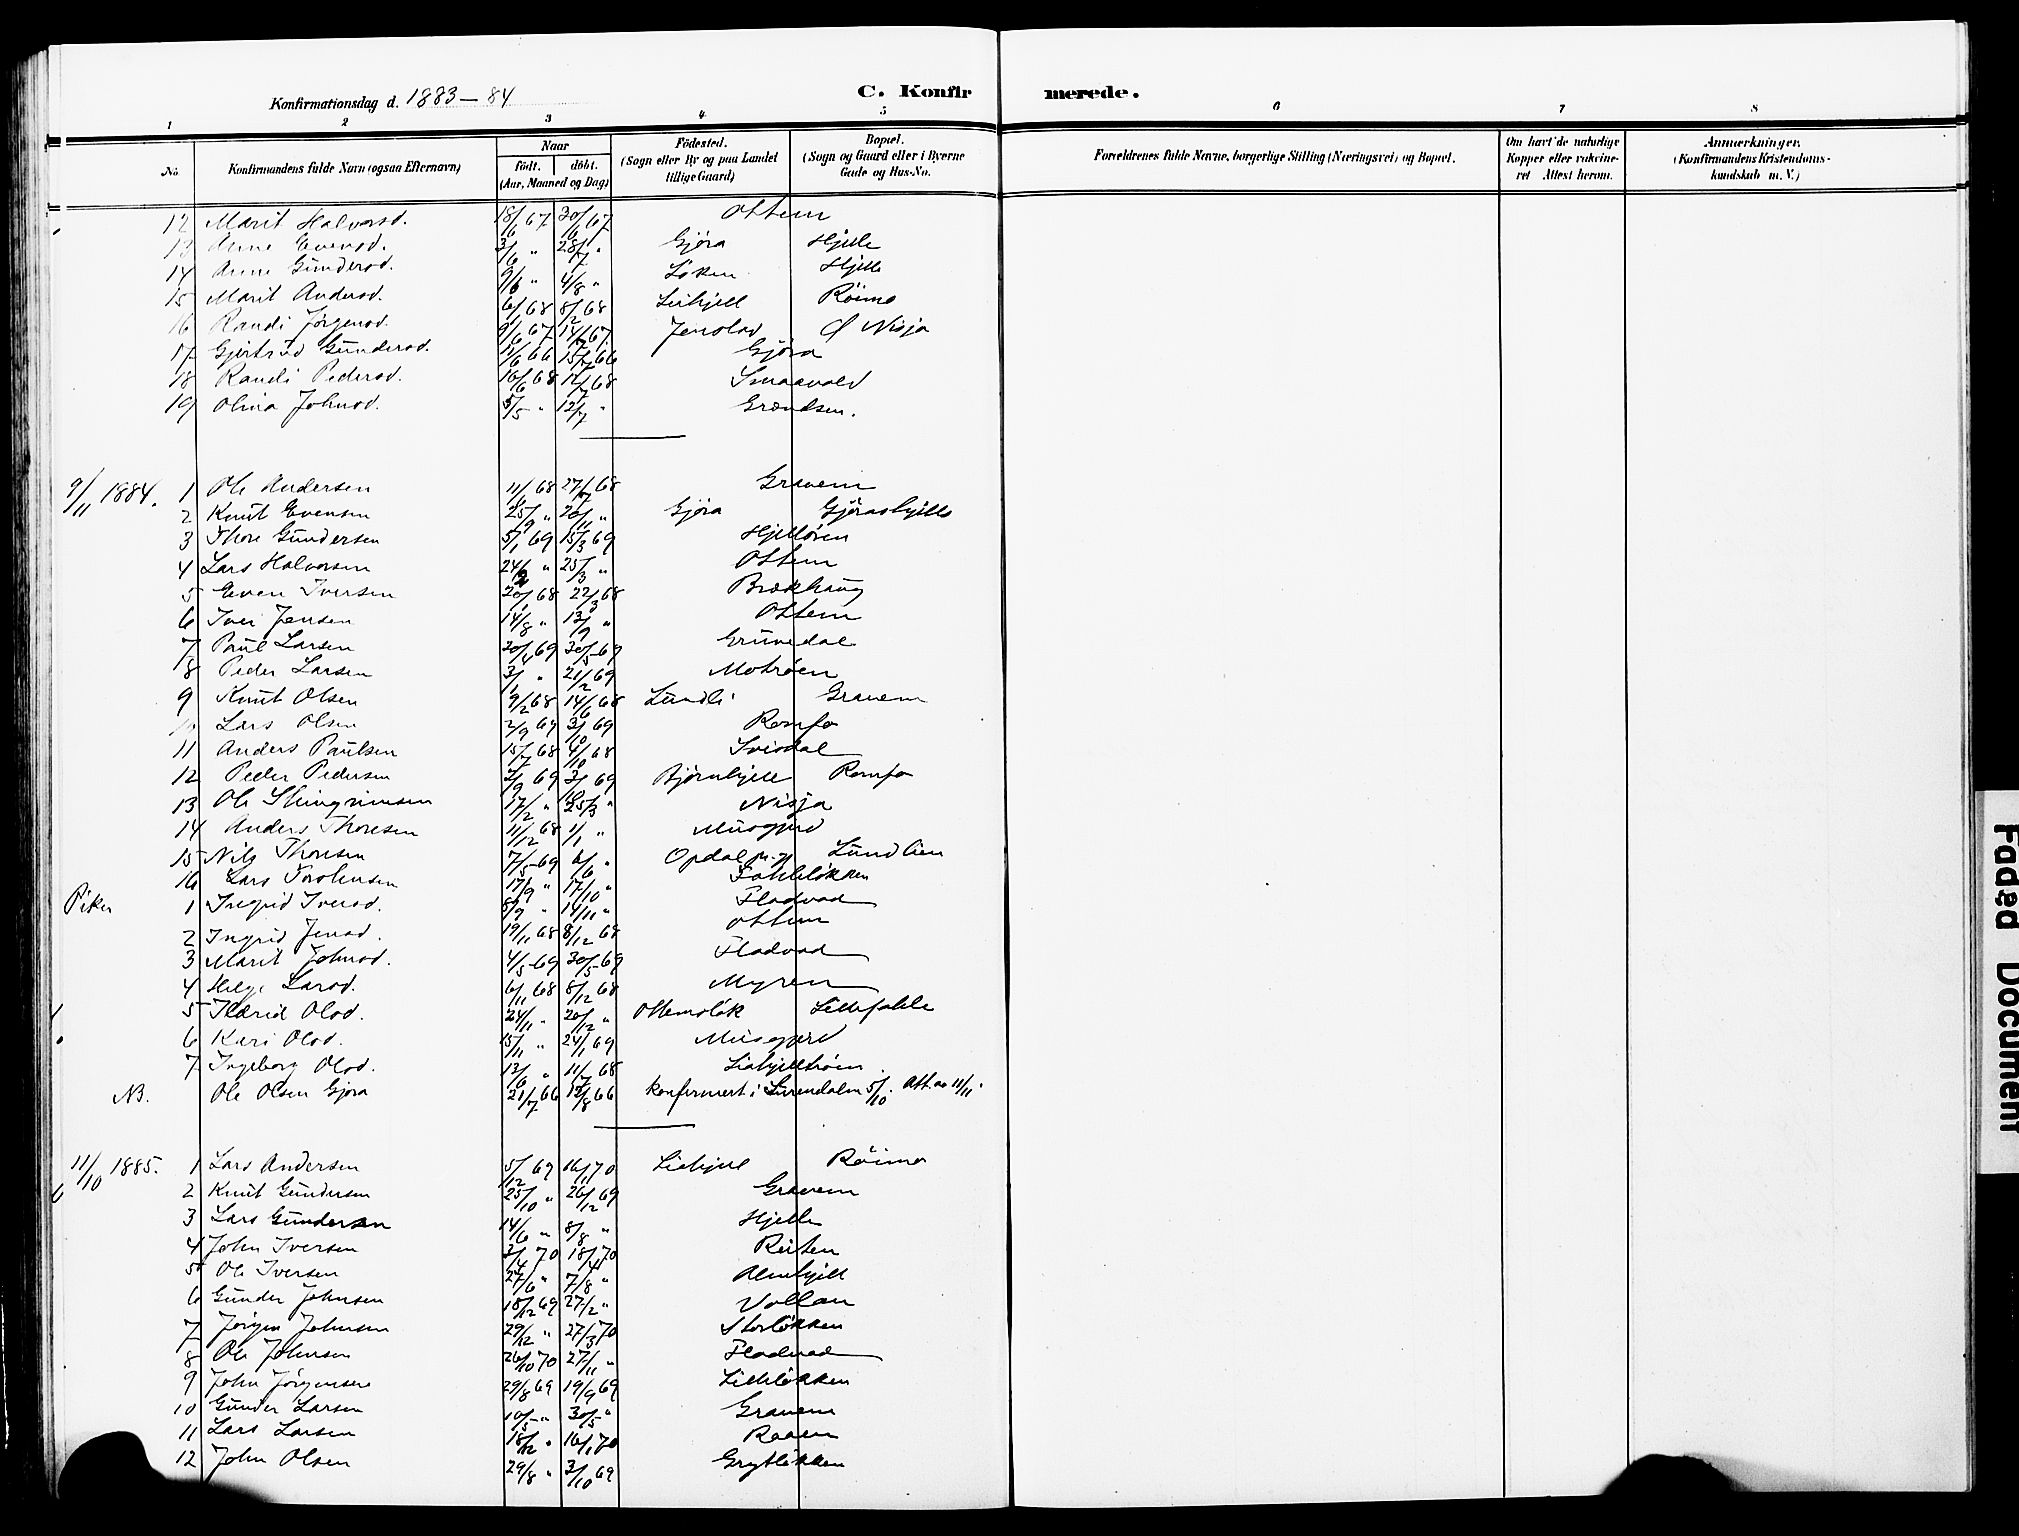 Konfirmationsdag d. 1883–84
C. Konfirmerede.
1 2 3 4 5 6 7 8
No
Konfirmandens fulde Navn (ogsaa Efternavn)
Naar
födt. döbt.
(Aar, Maaned og Dag)
Födested.
(Sogn eller By og paa Landet
tillige Gaard)
Bopæl.
(Sogn og Gaard eller i Byerne
Gade og Hus-No.
Forældrenes fulde Navne, borgerlige Stilling (Næringsvei) og Bopæl.
Om havt de naturlige
Kopper eller vakcine-
ret Attest herom.
Anmærkninger.
(Konfirmandens Kristendoms-
kundskab m. V.)
12 Marit Halvorsd. 18/6 67 30/6 67 Ottem
13 Anne Evensd. 3/6 " 28/7 " Gjøra Hjelle
14 Anne Gundersd. 9/6 " 4/8 " Løken Hjelle
15 Marit Andersd. 6/1 68 8/2 68 Liahjell Röimo
16 Randi Jørgensd. 9/6 67 14/7 67 Jenstad Nisja
17 Gjertrud Gundersd. 11/6 66 15/7 66 Gjøra
18 Randi Pedersd. 10/6 68 12/7 68 Smaavold
19 Olina Johnsd. 5/5 " 12/7 " Grændsen.
9/11 1884. 1 Ole Andersen 11/6 68 27/7 68 Gravem
2 Knut Evensen 25/9 " 20/11 " Gjøra Gjørashjelle
3 Thore Gundersen 5/1 69 15/3 69 Hjelløren
4 Lars Halvorsen 24/2 " 25/3 " Ottem
5 Even Iversen 20/1 68 22/3 68 Brækhaug
6 Iver Jensen 14/8 " 13/9 " Ottem
7 Paul Larsen 20/4 69 30/5 69 Gruvedal
8 Peder Larsen 3/1 " 21/2 69 Motrøen
9 Knut Olsen 9/2 68 14/6 68 Lundli Gravem
10 Lars Olsen 2/9 69 3/10 69 Romfo
11 Anders Paulsen 15/7 68 4/10 68 Svisdal
12 Peder Pedersen 2/9 69 3/10 69 Bjørnhjell Romfo
13 Ole Steingrimsen 17/2 " 25/3 " Nisja
14 Anders Thoresen 11/12 68 1/1 " Musgjerd
15 Nils Thoresen 7/5 69 6/6 " Opdal p.g. Lundlien
16 Lars Torstensen 17/9 " 17/10 " Fahleløkken
Piker 1 Ingrid Iversd. 8/9 " 14/11 " Fladvad
2 Ingrid Jensd. 19/11 68 8/12 68 Ottem
3 Marit Johnsd. 4/5 69 30/5 69 Fladvad
4 Helge Larsd. 6/11 68 8/12 68 Myren
5 Ildrid Olsd. 24/11 " 20/12 " Ottemsløk Litlefahle
6 Kari Olsd. 15/11 " 24/1 69 Musgjerd
7 Ingeborg Olsd. 13/6 " 11/7 68 Liahjelltrøen
NB. Ole Olsen Gjøra 21/7 66 12/8 66 konfirmert i Surendalen 5/10. Att. av 11/11.
11/10 1885. 1 Lars Andersen 5/12 69 16/1 70 Liahjell Röimo
2 Knut Gundersen 25/10 " 26/12 69 Gravem
3 Lars Gundersen 14/6 " 8/8 " Hjelle
4 John Iversen 3/4 70 18/4 70 Reiten
5 Ole Iversen 27/6 " 7/8 " Almhjell
6 Gunder Johnsen 18/12 69 27/2 " Vollan
7 Jørgen Johnsen 29/12 " 27/3 70 Storløkken
8 Ole Johnsen 26/10 70 27/11 " Fladvad
9 John Jørgensen 29/8 69 19/9 69 Litleløkken
10 Gunder Larsen 10/5 " 30/5 " Gravem
11 Lars Larsen 18/12 " 16/1 70 Raaen
12 John Olsen 29/8 " 3/10 69 Grytløkken
Faded Document